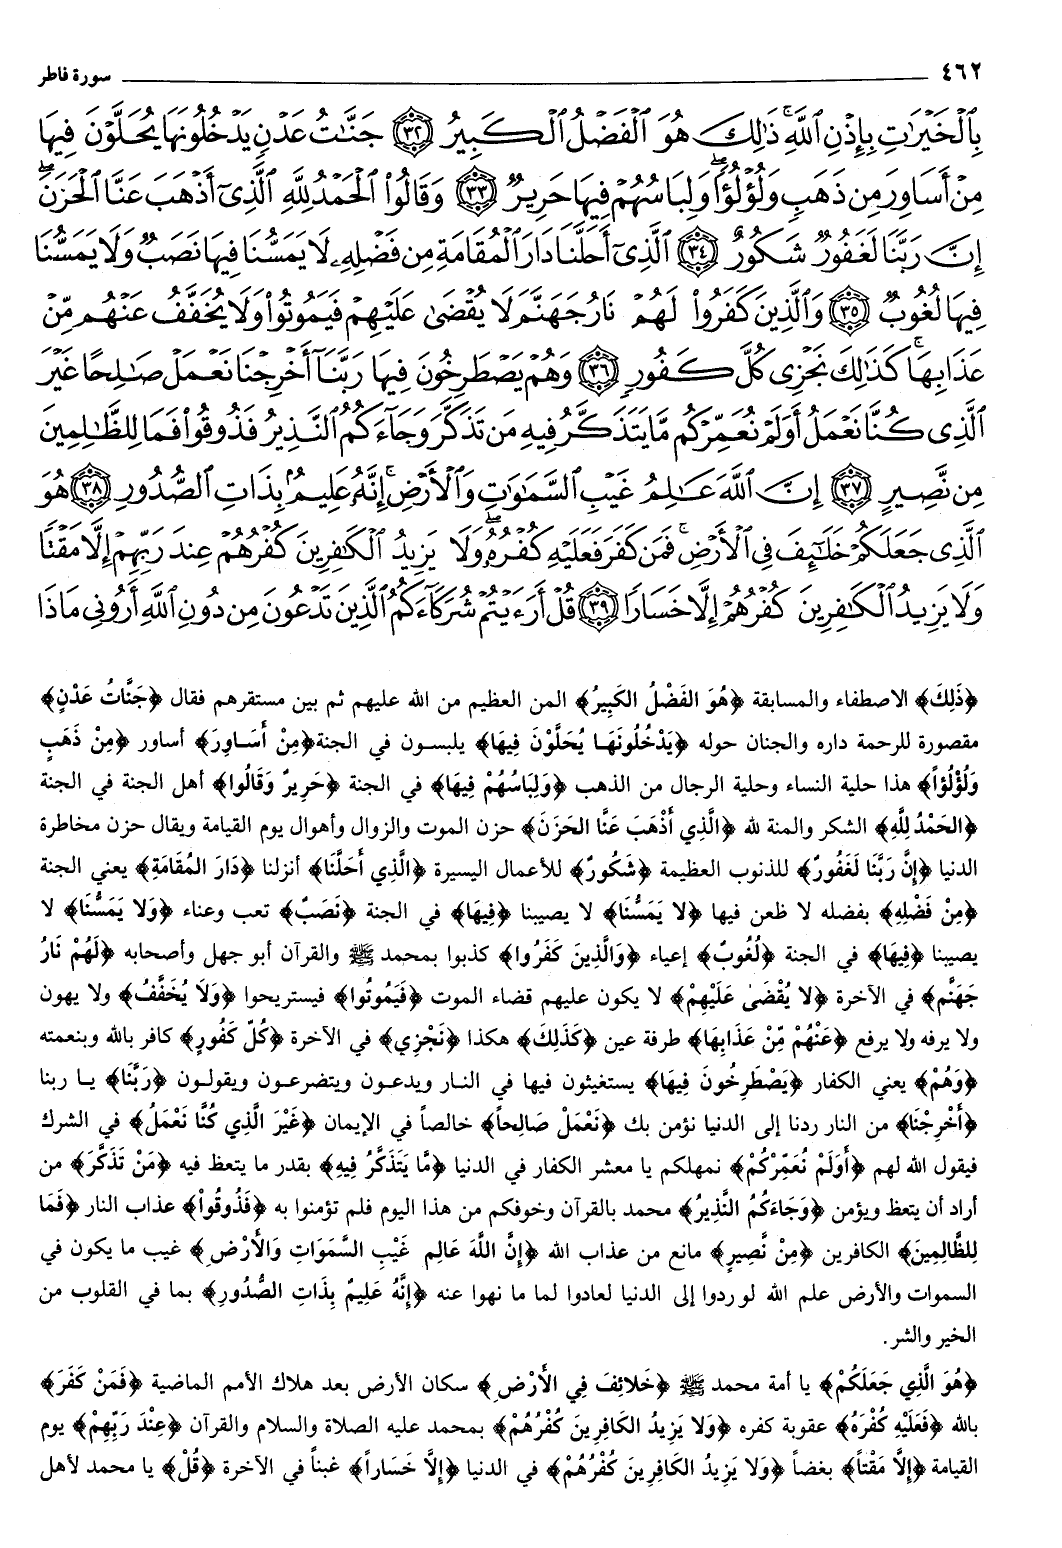 ٤٦٢ سورة فاطر
بِالْخَيْرَاتِ بِإِذْنِ اللَّهِ ذَٰلِكَ هُوَ الْفَضْلُ الْكَبِيرُ ﴿٣٢﴾ جَنَّاتُ عَدْنٍ يَدْخُلُونَهَا يُحَلَّوْنَ فِيهَا
مِنْ أَسَاوِرَ مِن ذَهَبٍ وَلُؤْلُؤًا ۖ وَلِبَاسُهُمْ فِيهَا حَرِيرٌ ﴿٣٣﴾ وَقَالُوا الْحَمْدُ لِلَّهِ الَّذِي أَذْهَبَ عَنَّا الْحَزَنَ ۖ
إِنَّ رَبَّنَا لَغَفُورٌ شَكُورٌ ﴿٣٤﴾ الَّذِي أَحَلَّنَا دَارَ الْمُقَامَةِ مِن فَضْلِهِ لَا يَمَسُّنَا فِيهَا نَصَبٌ وَلَا يَمَسُّنَا
فِيهَا لُغُوبٌ ﴿٣٥﴾ وَالَّذِينَ كَفَرُوا لَهُمْ نَارُ جَهَنَّمَ لَا يُقْضَىٰ عَلَيْهِمْ فَيَمُوتُوا وَلَا يُخَفَّفُ عَنْهُم مِّنْ
عَذَابِهَا ۚ كَذَٰلِكَ نَجْزِي كُلَّ كَفُورٍ ﴿٣٦﴾ وَهُمْ يَصْطَرِخُونَ فِيهَا رَبَّنَا أَخْرِجْنَا نَعْمَلْ صَالِحًا غَيْرَ
الَّذِي كُنَّا نَعْمَلُ أَوَلَمْ نُعَمِّرْكُم مَّا يَتَذَكَّرُ فِيهِ مَن تَذَكَّرَ وَجَاءَكُمُ النَّذِيرُ فَذُوقُوا فَمَا لِلظَّالِمِينَ
مِن نَّصِيرٍ ﴿٣٧﴾ إِنَّ اللَّهَ عَالِمُ غَيْبِ السَّمَاوَاتِ وَالْأَرْضِ ۚ إِنَّهُ عَلِيمٌ بِذَاتِ الصُّدُورِ ﴿٣٨﴾ هُوَ
الَّذِي جَعَلَكُمْ خَلَائِفَ فِي الْأَرْضِ ۚ فَمَن كَفَرَ فَعَلَيْهِ كُفْرُهُ ۖ وَلَا يَزِيدُ الْكَافِرِينَ كُفْرُهُمْ عِندَ رَبِّهِمْ إِلَّا مَقْتًا
وَلَا يَزِيدُ الْكَافِرِينَ كُفْرُهُمْ إِلَّا خَسَارًا ﴿٣٩﴾ قُلْ أَرَأَيْتُمْ شُرَكَاءَكُمُ الَّذِينَ تَدْعُونَ مِن دُونِ اللَّهِ أَرُونِي مَاذَا
﴿ذَلِكَ﴾ الاصطفاء والمسابقة ﴿هُوَ الفَضْلُ الكَبِيرُ﴾ المن العظيم من الله عليهم ثم بين مستقرهم فقال ﴿جَنَّاتُ عَدْنٍ﴾
مقصورة للرحمة داره والجنان حوله ﴿يَدْخُلُونَهَا يُحَلَّوْنَ فِيهَا﴾ يلبسون في الجنة ﴿مِنْ أَسَاوِرَ﴾ أساور ﴿مِنْ ذَهَبٍ
وَلُؤْلُؤاً﴾ هذا حلية النساء وحلية الرجال من الذهب ﴿وَلِبَاسُهُمْ فِيهَا﴾ في الجنة ﴿حَرِيرٌ وَقَالُوا﴾ أهل الجنة في الجنة
﴿الحَمْدُ لِلَّهِ﴾ الشكر والمنة لله ﴿الَّذِي أَذْهَبَ عَنَّا الحَزَنَ﴾ حزن الموت والزوال وأهوال يوم القيامة ويقال حزن مخاطرة
الدنيا ﴿إِنَّ رَبَّنَا لَغَفُورٌ﴾ للذنوب العظيمة ﴿شَكُورٌ﴾ للأعمال اليسيرة ﴿الَّذِي أَحَلَّنَا﴾ أنزلنا ﴿دَارَ المُقَامَةِ﴾ يعني الجنة
﴿مِنْ فَضْلِهِ﴾ بفضله لا ظعن فيها ﴿لا يَمَسُّنَا﴾ لا يصيبنا ﴿فِيهَا﴾ في الجنة ﴿نَصَبٌ﴾ تعب وعناء ﴿وَلا يَمَسُّنَا﴾ لا
يصيبنا ﴿فِيهَا﴾ في الجنة ﴿لُغُوبٌ﴾ إعياء ﴿وَالَّذِينَ كَفَرُوا﴾ كذبوا بمحمد ﷺ والقرآن أبو جهل وأصحابه ﴿لَهُمْ نَارُ
جَهَنَّمِ﴾ في الآخرة ﴿لا يُقْضَىٰ عَلَيْهِمْ﴾ لا يكون عليهم قضاء الموت ﴿فَيَمُوتُوا﴾ فيستريحوا ﴿وَلَا يُخَفَّفُ﴾ ولا يهون
ولا يرفه ولا يرفع ﴿عَنْهُمْ مِّنْ عَذَابِهَا﴾ طرفة عين ﴿كَذَلِكَ﴾ هكذا ﴿نَجْزِي﴾ في الآخرة ﴿كُلّ كَفُورٍ﴾ كافر بالله وبنعمته
﴿وَهُمْ﴾ يعني الكفار ﴿يَصْطَرِخُونَ فِيهَا﴾ يستغيثون فيها في النار ويدعون ويتضرعون ويقولون ﴿رَبَّنَا﴾ يا ربنا
﴿أَخْرِجْنَا﴾ من النار ردنا إلى الدنيا نؤمن بك ﴿نَعْمَلْ صَالِحاً﴾ خالصاً في الإيمان ﴿غَيْرَ الَّذِي كُنَّا نَعْمَلُ﴾ في الشرك
فيقول الله لهم ﴿أَوَلَمْ نُعَمِّرْكُمْ﴾ نمهلكم يا معشر الكفار في الدنيا ﴿مَّا يَتَذَكَّرُ فِيهِ﴾ بقدر ما يتعظ فيه ﴿مَنْ تَذَكَّرَ﴾ من
أراد أن يتعظ ويؤمن ﴿وَجَاءَكُمُ النَّذِيرُ﴾ محمد بالقرآن وخوفكم من هذا اليوم فلم تؤمنوا به ﴿فَذُوقُواْ﴾ عذاب النار ﴿فَمَا
لِلظَّالِمِينَ﴾ الكافرين ﴿مِنْ نَّصِيرٍ﴾ مانع من عذاب الله ﴿إِنَّ اللَّهَ عَالِمِ غَيْبِ السَّمَوَاتِ وَالأَرْضِ﴾ غيب ما يكون في
السموات والأرض علم الله لو ردوا إلى الدنيا لعادوا لما ما نهوا عنه ﴿إِنَّهُ عَلِيمٌ بِذَاتِ الصُّدُورِ﴾ بما في القلوب من
الخير والشر.
﴿هُوَ الَّذِي جَعَلَكُمْ﴾ يا أمة محمد ﷺ ﴿خَلائِفَ فِي الأَرْضِ﴾ سكان الأرض بعد هلاك الأمم الماضية ﴿فَمَنْ كَفَرَ﴾
بالله ﴿فَعَلَيْهِ كُفْرَهُ﴾ عقوبة كفره ﴿وَلا يَزِيدُ الكَافِرِينَ كُفْرُهُمْ﴾ بمحمد عليه الصلاة والسلام والقرآن ﴿عِنْدَ رَبِّهِمْ﴾ يوم
القيامة ﴿إِلَّا مَقْتاً﴾ بغضاً ﴿وَلا يَزِيدُ الكَافِرِينَ كُفْرُهُمْ﴾ في الدنيا ﴿إِلَّا خَسَاراً﴾ غبناً في الآخرة ﴿قُلْ﴾ يا محمد لأهل